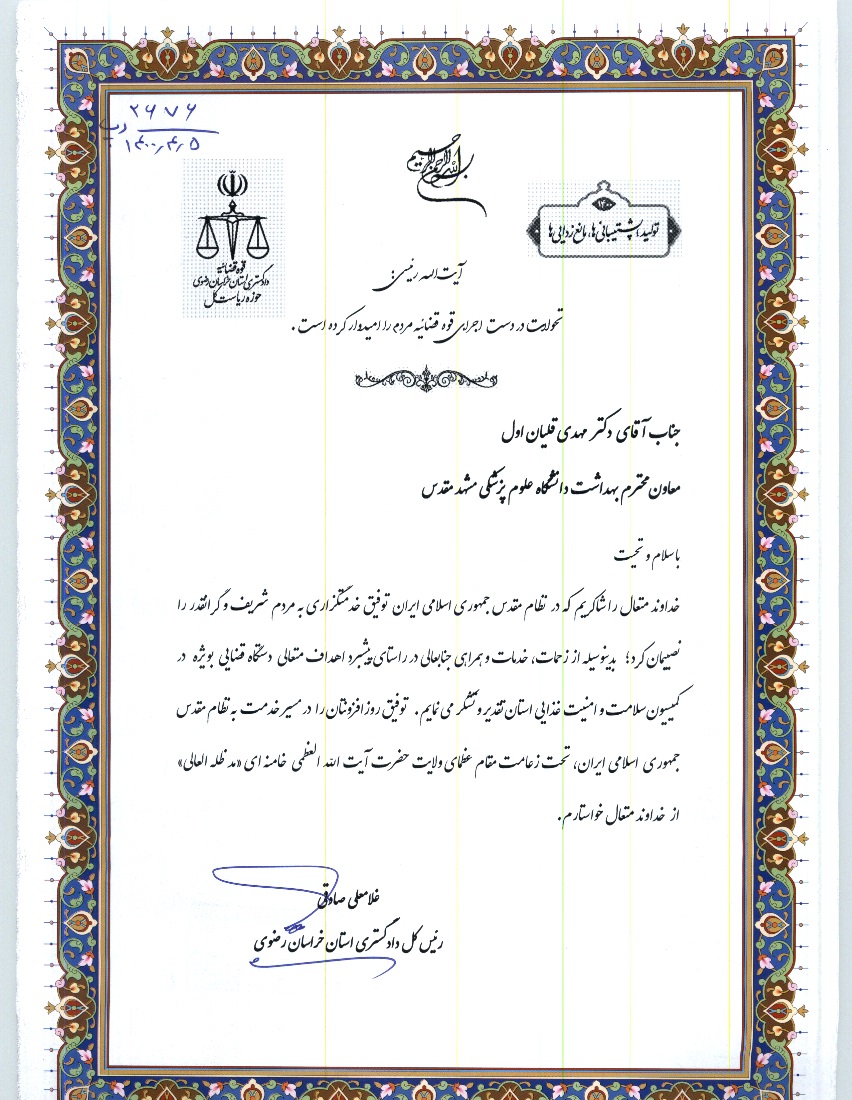 ۲۶۷۶
۱۴۰۰٫۴٫۵
بسم الله الرحمن الرحیم
۱۴۰۰
تولید، پشتیبانی‌ها، مانع‌زدایی‌ها
قوه قضائیه
دادگستری استان خراسان رضوی
حوزه ریاست کل
آیت الله رئیسی:
تحولات در دست اجرای قوه قضائیه مردم را امیدوار کرده است.
جناب آقای دکتر مهدی قلیان اول
معاون محترم بهداشت دانشگاه علوم پزشکی مشهد مقدس
باسلام و تحیت
خداوند متعال را شاکریم که در نظام مقدس جمهوری اسلامی ایران توفیق خدمتگزاری به مردم شریف و گرانقدر را
نصیبمان کرد؛ بدینوسیله از زحمات، خدمات و همراهی جنابعالی در راستای پیشبرد اهداف متعالی دستگاه قضایی بویژه در
کمیسیون سلامت و امنیت غذایی استان تقدیر و تشکر می نمایم. توفیق روز افزونتان را در مسیر خدمت به نظام مقدس
جمهوری اسلامی ایران، تحت زعامت مقام عظمای ولایت حضرت آیت الله العظمی خامنه ای «مد ظله العالی»
از خداوند متعال خواستارم.
غلامعلی صادقی
رئیس کل دادگستری استان خراسان رضوی